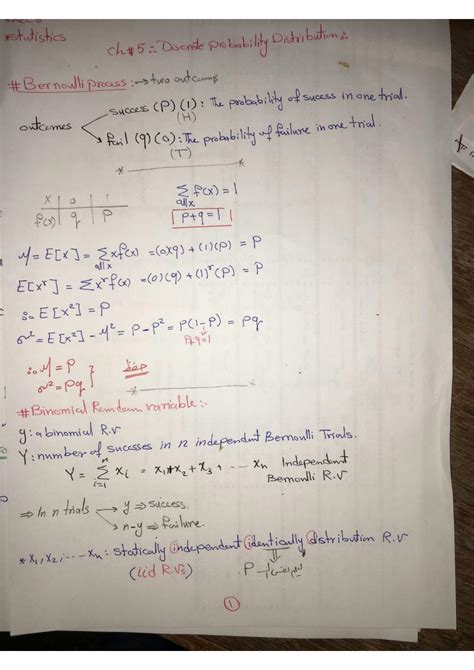 *statistics
ch#5: Discrete probability Distribution:
#Bernoulli process: → two outcoms
outcomes
succes (P) (1): The probability of sucess in one trial.
(H)
fail (q) (0): The probability of failure in one trial.
(T)
x | 0 | 1
f(x) | q | P
∑ f(x) = 1
all x
P+q=1
μ = E[x] = ∑ x f(x) = (0)(q) + (1)(P) = P
all x
E[x^r] = ∑ x^r f(x) = (0)(q) + (1)^r (P) = P
∴ E[x²] = P
σ² = E[x²] - μ² = P - P² = P(1-P) = Pq
P+q=1
∴ μ = P
σ² = Pq
حفظ
#Binomial Random variable:-
y: a binomial R.v
Y: number of sucesses in n independent Bernoulli Trials.
Y = ∑ xi = x1 + x2 + x3 + ... xn Independent
n
i=1
Bernoulli R.v
⇒ In n trials
y ⇒ success.
n-y ⇒ failure.
* x1, x2, ... xn: statically independent identically distribution R.v
(iid R.Vs)
P
1